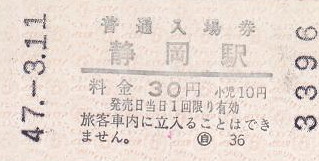 47.-3.11
普通入場券
静岡駅
料金 30円 小児10円
発売日当日1回限り有効
旅客車内に立入ることはでき
ません。 ㊀自 36
3396